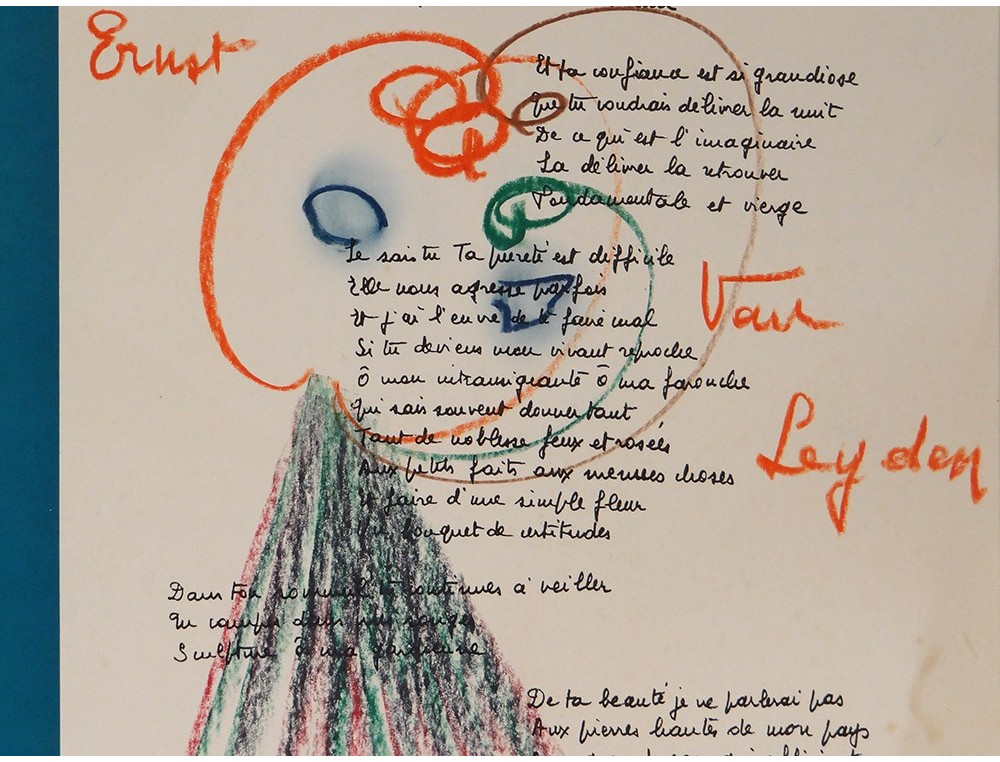 Ernst
Et ta confiance est si grandiose
Que tu voudrais délivrer la nuit
De ce qui est l'imaginaire
La délivrer la retrouver
Fondamentale et vierge
Le sais tu Ta pureté est difficile
Elle nous agresse parfois
Et j'ai l'envie de te faire mal
Van
Si tu deviens mon vivant reproche
Ô mon intransigeante Ô ma farouche
Qui sais souvent donner tant
Tant de noblesse feux et rosées
Aux petits faits aux menues choses
Leyden
Et faire d'une simple fleur
Un bouquet de certitudes
Dans ton sommeil tu continues à veiller
Tu campes dans
Sculpture Ô ma
De ta beauté je ne parlerai pas
Aux pierres hautes de mon pays